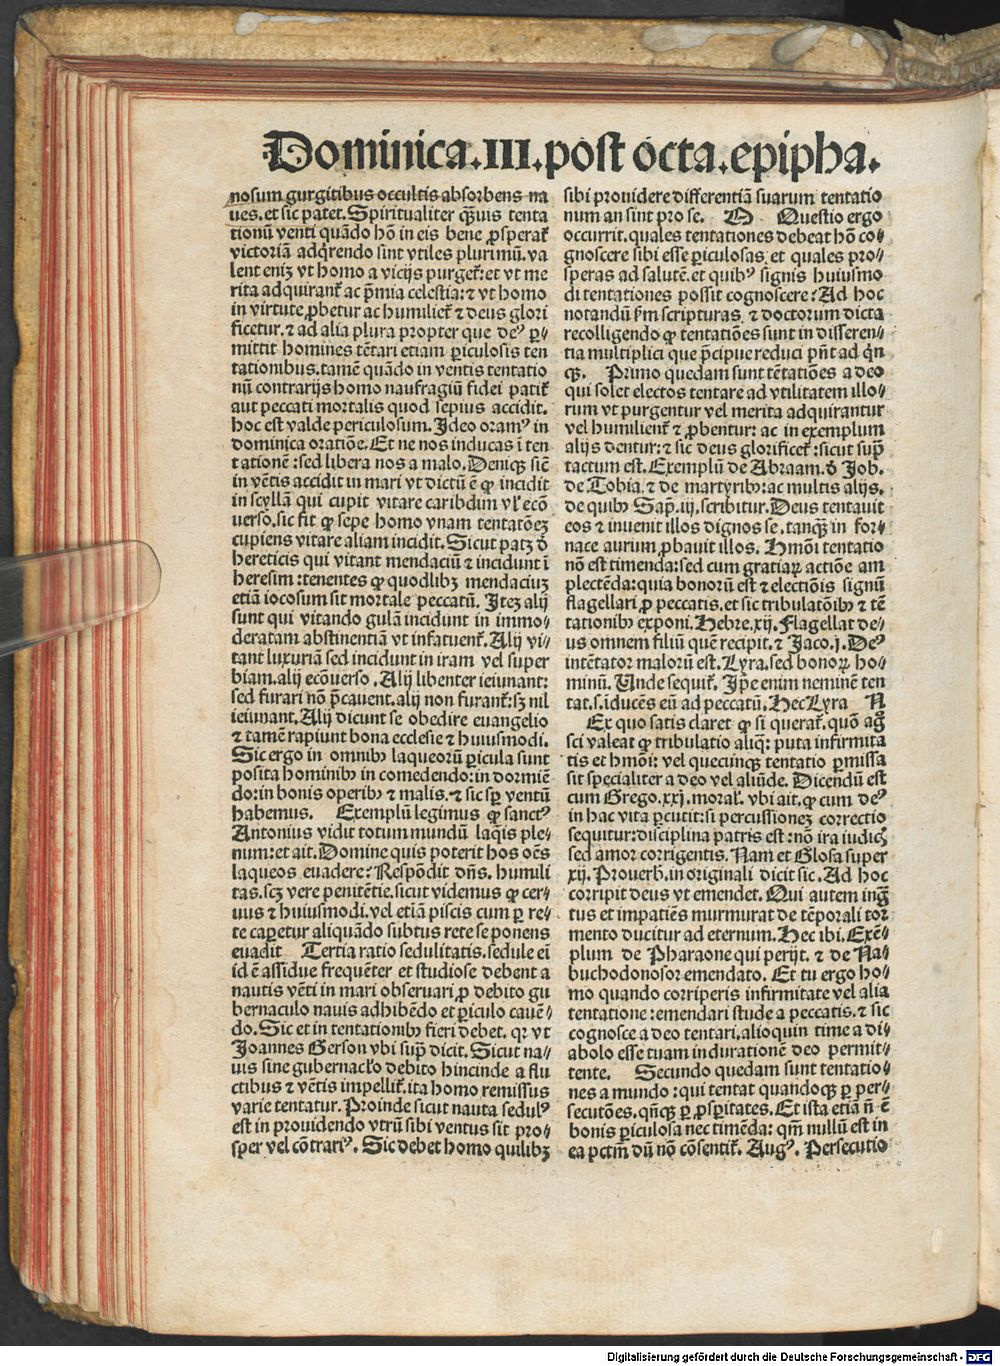 Dominica.III.post octa.epipha.
nosum gurgitibus occultis absorbens na
ues.et sic patet.Spiritualiter qͣuis tenta
tionū venti quādo hō in eis bene ꝓsperaͭ
victoriā adqͥrendo sint vtiles plurimū.va
lent eniꝫ vt homo a vicijs purgeť:et vt me
rita adquiranť ac p̄mia celestia:⁊ vt homo
in virtute ꝓbetur ac humilieť ⁊ deus glori
ficetur.⁊ ad alia plura propter que deꝰ ꝑ⸗
mittit homines tētari etiam ꝑiculosis ten
tationibus.tamē quādo in ventis tentatio
nū contrarijs homo naufragiū fidei patiť
aut peccati mortalis quod sepius accidit.
hoc est valde periculosum. Ideo oramꝰ in
dominica oratiōe.Et ne nos inducas ī ten
tationē:sed libera nos a malo.Deniqꝫ siē
in vētis accidit in mari vt dictū ē ꝙ incidit
in scyllā qui cupit vitare caribdim vľ ecō
uerso.sic fit ꝙ sepe homo vnam tentatōeꝫ
cupiens vitare aliam incidit.Sicut patꝫ ď
hereticis qui vitant mendaciū ⁊ incidunt ī
heresim:tenentes ꝙ quodlibꝫ mendaciuꝫ
etiā iocosum sit mortale peccatū. Iteꝫ alij
sunt qui vitando gulā incidunt in immo⸗
deratam abstinentiā vt infatuenť.Alij vi⸗
tant luxuriā sed incidunt in iram vel super
biam.alij ecōuerso.Alij libenter ieiunant:
sed furari nō p̄cauent.alij non furanť:sꝫ nil
ieiunant.Alij dicunt se obedire euangelio
⁊ tamē rapiunt bona ecclesie ⁊ huiusmodi.
Sic ergo in omnibꝰ laqueorū ꝑicula sunt
posita hominibꝰ in comedendo:in dormiē
do:in bonis operibꝰ ⁊ malis.⁊ sic sꝑ ventū
habemus. Exemplū legimus ꝙ sanctꝰ
Antonius vidit totum mundū laqͥs ple⸗
num:et ait.Domine quis poterit hos oēs
laqueos euadere?Respōdit dn̄s. humili
tas.scꝫ vere penitētie.sicut videmus ꝙ cer⸗
uus ⁊ huiusmodi.vel etiā piscis cum ꝑ re⸗
te capetur aliquādo subtus rete se ponens
euadit Tertia ratio sedulitatis.sedule eī
id ē assidue frequēter et studiose debent a
nautis vēti in mari obseruari ꝓ debito gu
bernaculo nauis adhibēdo et ꝑiculo cauē⸗
do.Sic et in tentationibꝰ fieri debet. qꝛ vt
Joannes Gerson vbi supͣ dicit.Sicut na⸗
uis sine gubernacľo debito hincinde a flu
ctibus ⁊ vētis impelliť.ita homo remissus
varie tentatur.Proinde sicut nauta sedulꝰ
est in prouidendo vtrū sibi ventus sit pro⸗
sper vel cōtrariꝰ. Sic debet homo quilibꝫ
sibi prouidere differentiā suarum tentatio
num an sint pro se. M Questio ergo
occurrit.quales tentationes debeat hō co⸗
gnoscere sibi esse ꝑiculosas.et quales pro⸗
speras ad salutē.et quibꝰ signis huiusmo
di tentationes possit cognoscere?Ad hoc
notandū ẜm scripturas ⁊ doctorum dicta
recolligendo ꝙ tentatiōes sunt in differen⸗
tia multiplici que p̄cipue reduci pn̄t ad qͥn
qꝫ. Primo quedam sunt tētatiōes a deo
qui solet electos tentare ad vtilitatem illo⸗
rum vt purgentur vel merita adquirantur
vel humilienť ⁊ ꝓbentur: ac in exemplum
alijs dentur:⁊ sic deus glorificeť:sicut supͣ
tactum est.Exemplū de Abraam.ď Job.
de Tobia.⁊ de martyribꝰ:ac multis alijs.
de quibꝰ Sap̄.iij.scribitur.Deus tentauit
eos ⁊ inuenit illos dignos se.tanqͣꝫ in for⸗
nace aurum ꝓbauit illos. Hm̄oi tentatio
nō est timenda:sed cum gratiaꝝ actiōe am
plectēda:quia bonorū est ⁊ electiōis signū
flagellari ꝓ peccatis.et sic tribulatōibꝰ ⁊ tē
tationibꝰ exponi.Hebre.xij.Flagellat de⸗
us omnem filiū quē recipit.⁊ Jaco.j.Deꝰ
intētator malorū est.Lyra.sed bonoꝝ ho⸗
minū. Unde sequiť. Ip̄e enim neminē ten
tat.s.iducēs eū ad peccatū.Hec Lyra N
Ex quo satis claret ꝙ si querať.quō agͦ
sci valeat ꝙ tribulatio aliqͣ: puta infirmita
tis et hm̄oi: vel quecunqꝫ tentatio ꝑmissa
sit specialiter a deo vel aliūde. Dicendū est
cum Grego.xxj.moral. vbi ait.ꝙ cum deꝰ
in hac vita ꝑcutit:si percussioneꝫ correctio
sequitur:disciplina patris est:nō ira iudicꝭ
sed amor corrigentis.Nam et Glosa super
xij.Prouerb.in originali dicit sic.Ad hoc
corripit deus vt emendet.Qui autem ingͣ
tus et impatiēs murmurat de tēporali tor
mento ducitur ad eternum.Hec ibi.Exē⸗
plum de Pharaone qui perijt.⁊ de Na⸗
buchodonosor emendato. Et tu ergo ho⸗
mo quando corriperis infirmitate vel alia
tentatione:emendari stude a peccatis.⁊ sic
cognosce a deo tentari.alioquin time a di⸗
abolo esse tuam indurationē deo permit⸗
tente. Secundo quedam sunt tentatio⸗
nes a mundo:qui tentat quandoqꝫ ꝑ per⸗
secutōes.qn̄qꝫ ꝑ ꝓsperitates.Et ista etiā n̄ ē
bonis ꝑiculosa nec timēda: qm̄ nullū est in
ea pctm̄ dū nō cōsentiť. Augꝰ. Persecutio
Digitalisierung gefördert durch die Deutsche Forschungsgemeinschaft - DFG